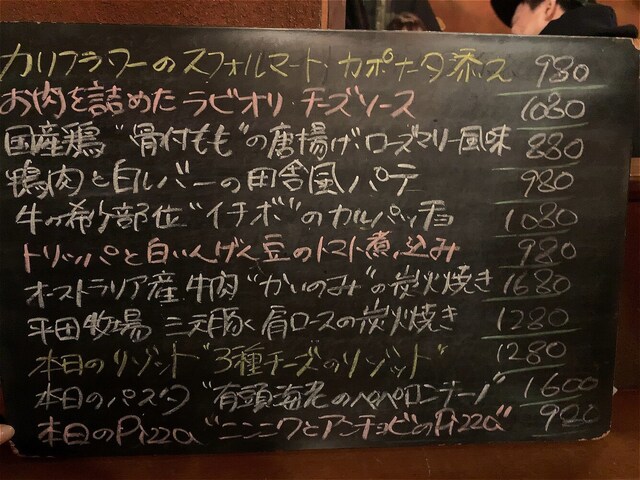 カリフラワーのスフォルマート・カポナータ添え 980
お肉を詰めたラビオリ チーズソース 1080
国産鶏"骨付もも"の唐揚げ、ローズマリー風味 880
鴨肉と白レバーの田舎風パテ 980
牛の希少部位"イチボ"のカルパッチョ 1080
トリッパと白いんげん豆のトマト煮込み 980
オーストラリア産 牛肉"かいのみ"の炭火焼き 1680
平田牧場 三元豚 肩ロースの炭火焼き 1280
本日のリゾット"3種チーズのリゾット" 1280
本日のパスタ"有頭海老のペペロンチーノ" 1600
本日のPizza"ニンニクとアンチョビのPizza" 980